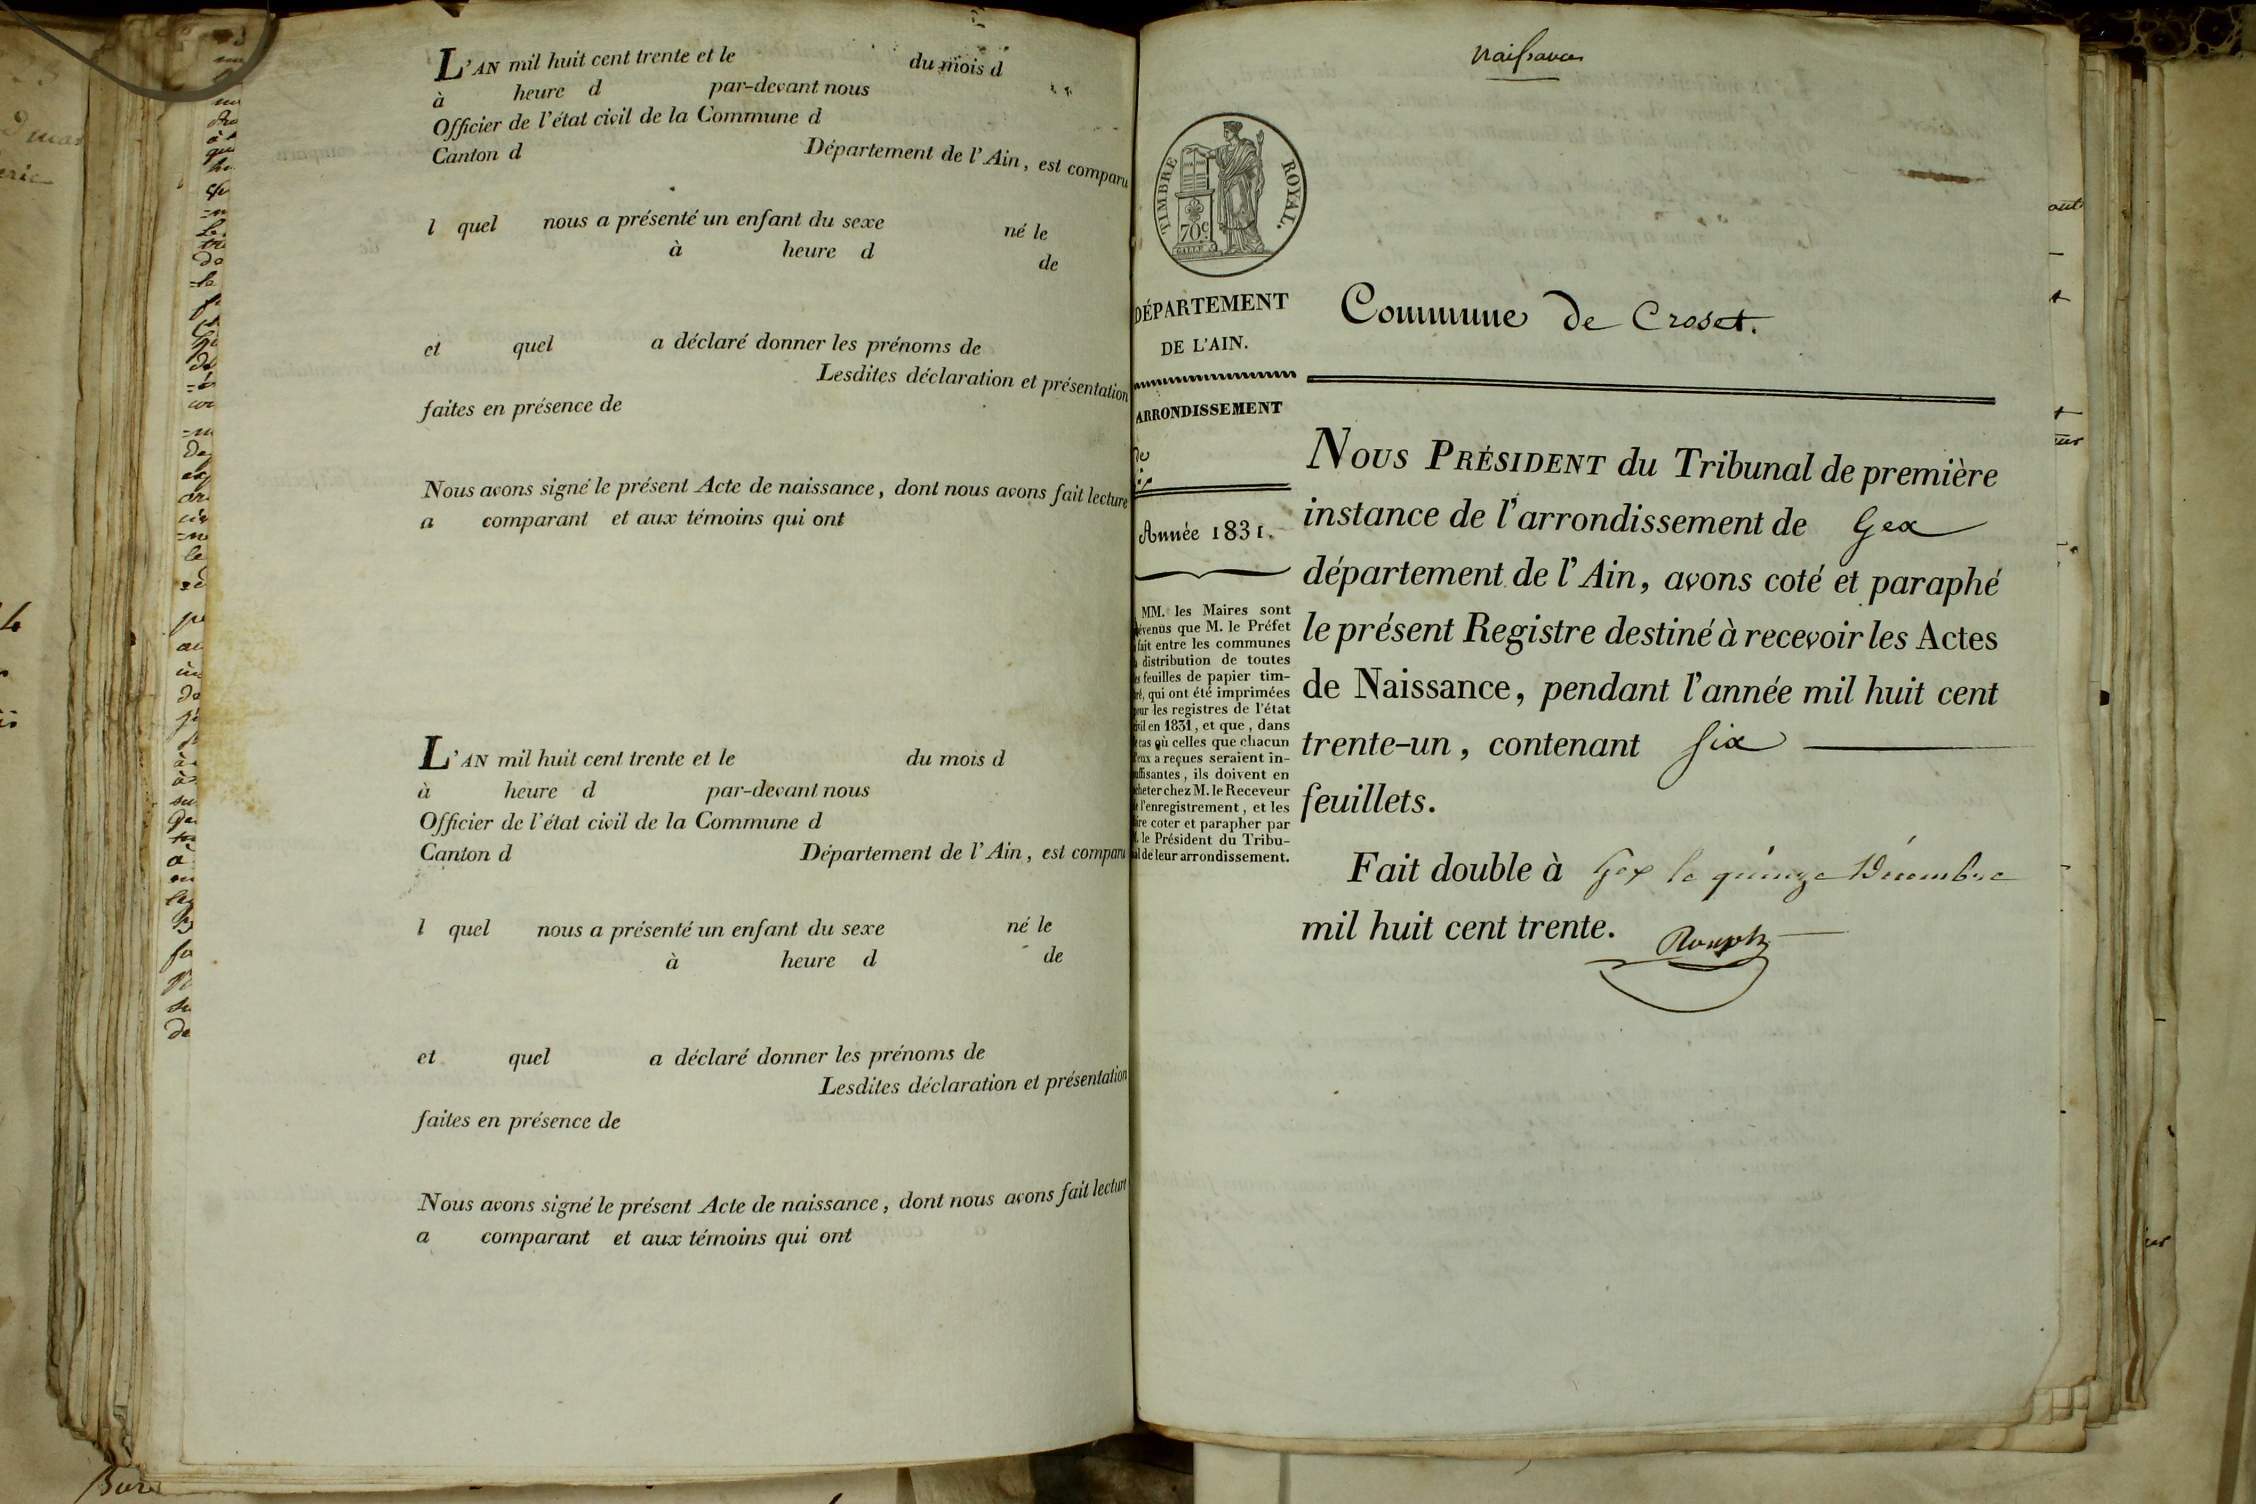 L'AN mil huit cent trente et le du mois d
à heure d par-devant nous
Officier de l'état civil de la Commune d
Canton d Département de l'Ain, est comparu
l quel nous a présenté un enfant du sexe né le
à heure d de
et quel a déclaré donner les prénoms de
Lesdites déclaration et présentation
faites en présence de
Nous avons signé le présent Acte de naissance, dont nous avons fait lecture
a comparant et aux témoins qui ont
L'AN mil huit cent trente et le du mois d
à heure d par-devant nous
Officier de l'état civil de la Commune d
Canton d Département de l'Ain, est comparu
l quel nous a présenté un enfant du sexe né le
à heure d de
et quel a déclaré donner les prénoms de
Lesdites déclaration et présentation
faites en présence de
Nous avons signé le présent Acte de naissance, dont nous avons fait lecture
a comparant et aux témoins qui ont
Naissances
TIMBRE ROYAL.
70c
DÉPARTEMENT
DE L'AIN.
ARRONDISSEMENT
de
Année 1831.
MM. les Maires sont
que M. le Préfet
fait entre les communes
distribution de toutes
feuilles de papier tim-
qui ont été imprimées
les registres de l'état
en 1831, et que, dans
cas où celles que chacun
a reçues seraient in-
ils doivent en
chez M. le Receveur
l'enregistrement, et les
coter et parapher par
le Président du Tribu-
de leur arrondissement.
Commune de Croset.
NOUS PRÉSIDENT du Tribunal de première
instance de l'arrondissement de Gex
département de l'Ain, avons coté et paraphé
le présent Registre destiné à recevoir les Actes
de Naissance, pendant l'année mil huit cent
trente-un, contenant six
feuillets.
Fait double à Gex le quinze Décembre
mil huit cent trente.